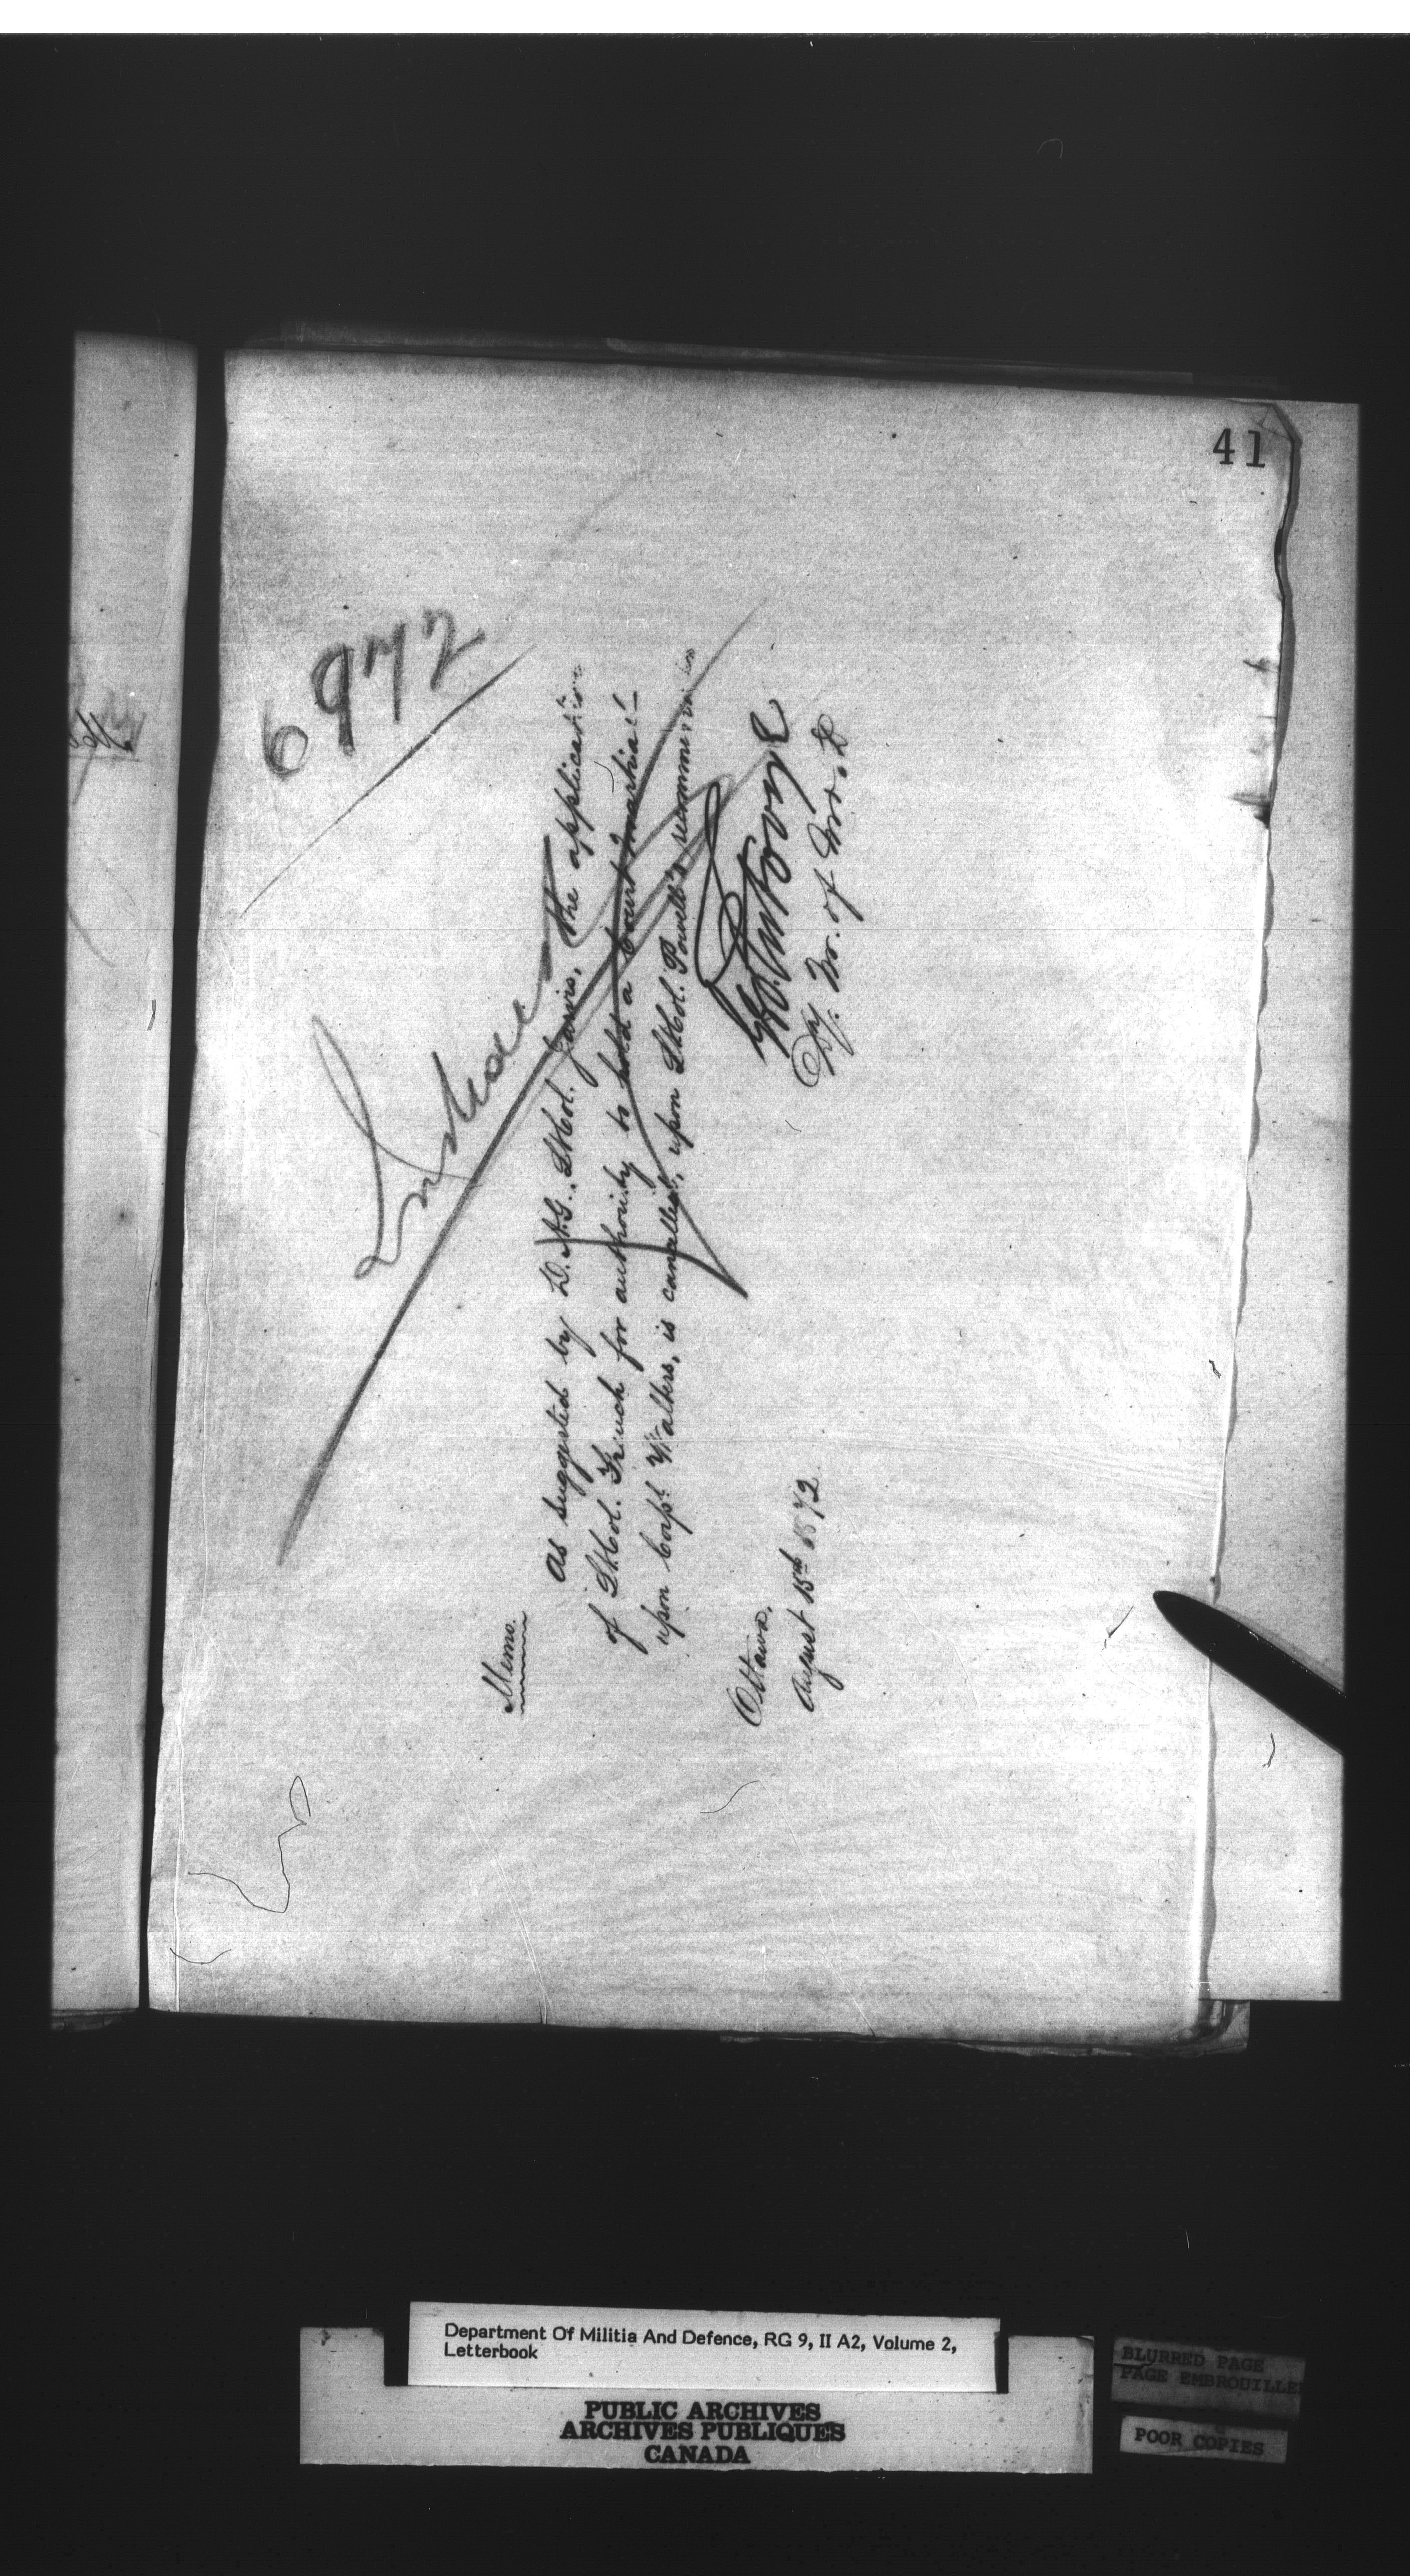 41
6972
Memo.
As suggested by D.A.G. Lt Col. Jarvis, the application
of Lt Col. French for authority to hold a Court martial
upon Corpl. Walters, is cancelled, upon Lt Col. Powell's recommendation
Ottawa,
August 15th 1872.
Dy. M. of M. & D
Department Of Militia And Defence, RG 9, II A2, Volume 2,
Letterbook
PUBLIC ARCHIVES
ARCHIVES PUBLIQUES
CANADA
BLURRED PAGE
PAGE EMBROUILLEE
POOR COPIES